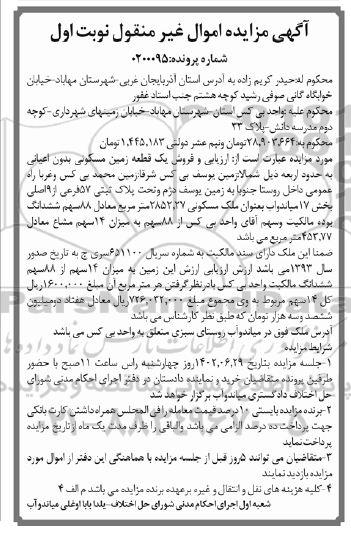 آگهی مزایده اموال غیر منقول نوبت اول
شماره پرونده:۰۲۰۰۰۹۵
محکوم له:حیدر کریم زاده به آدرس استان آذربایجان غربی-شهرستان مهاباد-خیابان
خوابگاه گانی صوفی رشید کوچه هشتم جنب استاد غفور
محکوم علیه :واحد بی کس استان -شهرستان مهاباد-خیابان زمینهای شهرداری-کوچه
دوم مدرسه دانش-پلاک ۳۳
محکوم به:۲۸,۹۰۳,۶۶۴تومان ونیم عشر دولتی ۱,۴۴۵,۱۸۳ تومان
مورد مزایده عبارت است از: ارزیابی و فروش یک قطعه زمین مسکونی بدون اعیانی
به حدود اربعه ذیل شمالازمین یوسف بی کس شرقازمین محمد بی کس وغربا راه
عمومی داخل روستا جنوبا به زمین یوسف دژم وتحت پلاک ثبتی ۵۷فرعی از۹اصلی
بخش ۱۷میاندواب بعنوان ملک مسکونی ۲۸۵۲,۲۷متر مربع معادل ۸۸سهم ششدانگ
بوده مالکیت وسهم آقای واحد بی کس از ۸۸سهم به میزان ۱۴سهم مشاع معادل
۴۵۳,۷۷متر مربع می باشد
ضمنا این ملک دارای سند مالکیت به شماره سریال ۶۵۱۱۰۰سری ج به تاریخ صدور
سال ۱۳۹۳می باشد ارزش ارزیابی ارزش این زمین به میزان ۱۴سهم از ۸۸سهم
ششدانگ مالکیت واحد بی کس بادرنظر گرفتن هر متر مربع آن مبلغ ۱۶۰۰,۰۰۰ریال
کل ۱۴سهم مربوط به وی مجموع مبلغ ۷۲۶,۰۳۲,۰۰۰ریال معادل هفتاد دومیلیون
ششصد وسه هزار تومان که طبق نظر کارشناس می باشد
آدرس ملک فوق در میاندواب روستای سبزی متعلق به واحد بی کس می باشد
شرایط مزایده
۱-جلسه مزایده بتاریخ ۱۴۰۲,۰۶,۲۹روز چهارشنبه راس ساعت ۱۱صبح با حضور
طرفین پرونده متقاضیان خرید و نماینده دادستان در دفتر اجرای احکام مدنی شورای
حل اختلاف دادگستری میاندواب برگزار خواهد شد
۲-برنده مزایده بایستی ۱۰درصد قیمت معامله را فی المجلس همراه داشتن کارت بانکی
جهت پرداخت ده درصد الزامی می باشد والباقی را ظرف مدت یک ماه از تاریخ مزایده
پرداخت نماید
۳-متقاضیان می توانند ۵روز قبل از جلسه مزایده با هماهنگی این دفتر از اموال مورد
مزایده بازدید نمایند
۴-کلیه هزینه های نقل و انتقال و غیره برعهده برنده مزایده می باشد م الف ۴
شعبه اول اجرای احکام مدنی شورای حل اختلاف-یلدا بابا اوغلی میاندوآب